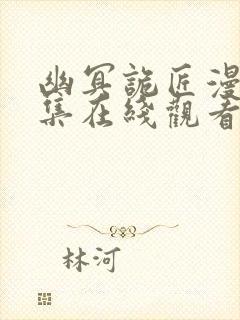 幽冥詭匠漫
集在綫觀看
林河